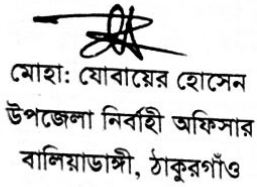 মোহা: যোবায়ের হোসেন
উপজেলা নির্বাহী অফিসার
বালিয়াডাঙ্গী, ঠাকুরগাঁও